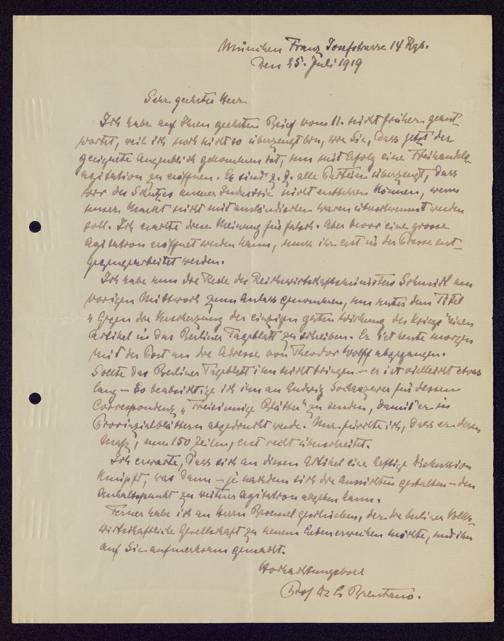 München Franz Josefstrasse 14 Rgb.
Den 25. Juli 1919
Sehr geehrter Herr
Ich habe auf Ihren geehrten Brief vom 11. nicht früher geant-
wortet, weil ich noch nicht so überzeugt bin, wie Sie, dass jetzt der
geeignete Augenblick gekommen ist, um mit Erfolg eine Freihandels-
agitation zu eröffnen. Es sind z. Z. alle Parteien überzeugt, dass
wir des Schutzes unserer Industrie nicht entbehren können, wenn
unser Markt nicht mit ausländischen Waren überschwemmt werden
soll. Ich erachte diese Meinung für falsch. Aber bevor eine grosse
Agitation eröffnet werden kann, muss ihr erst in der Presse ent-
gegengearbeitet werden.
Ich habe nun die Rede des Reichswirtschaftsministers Schmidt am
vorigen Mittwoch zum Anlass genommen, um unter dem Titel
"Gegen die der einzigen guten Wirkung des Kriegs" einen
Artikel in das Berliner Tageblatt zu schreiben. Er ist heute morgen
mit der Post an die Adresse von Theodor Wolff abgegangen.
Sollte das Berliner Tageblatt ihn nicht bringen – er ist vielleicht etwas
lang – so beabsichtige ich ihn an Ludwig für dessen
Correspondenz "Freisinnige Blätter" zu senden, damit er in
Provinzialblättern abgedruckt werde. Nur fürchte ich, dass er deren
um 150 Zeilen, erst recht überschreitet.
Ich erwarte, dass sich an diesen Artikel eine heftige Diskussion
knüpft, was dann – je nachdem sich die Aussichten gestalten – den
Anhaltspunkt zu weiterer Agitation abgeben kann.
Ferner habe ich an Herrn Broemel geschrieben, der die Berliner Volks-
wirtschaftliche Gesellschaft zu neuem Leben erwecken möchte, und ihn
auf Sie aufmerksam gemacht.
Hochachtungsvoll
Prof Dr L Brentano.